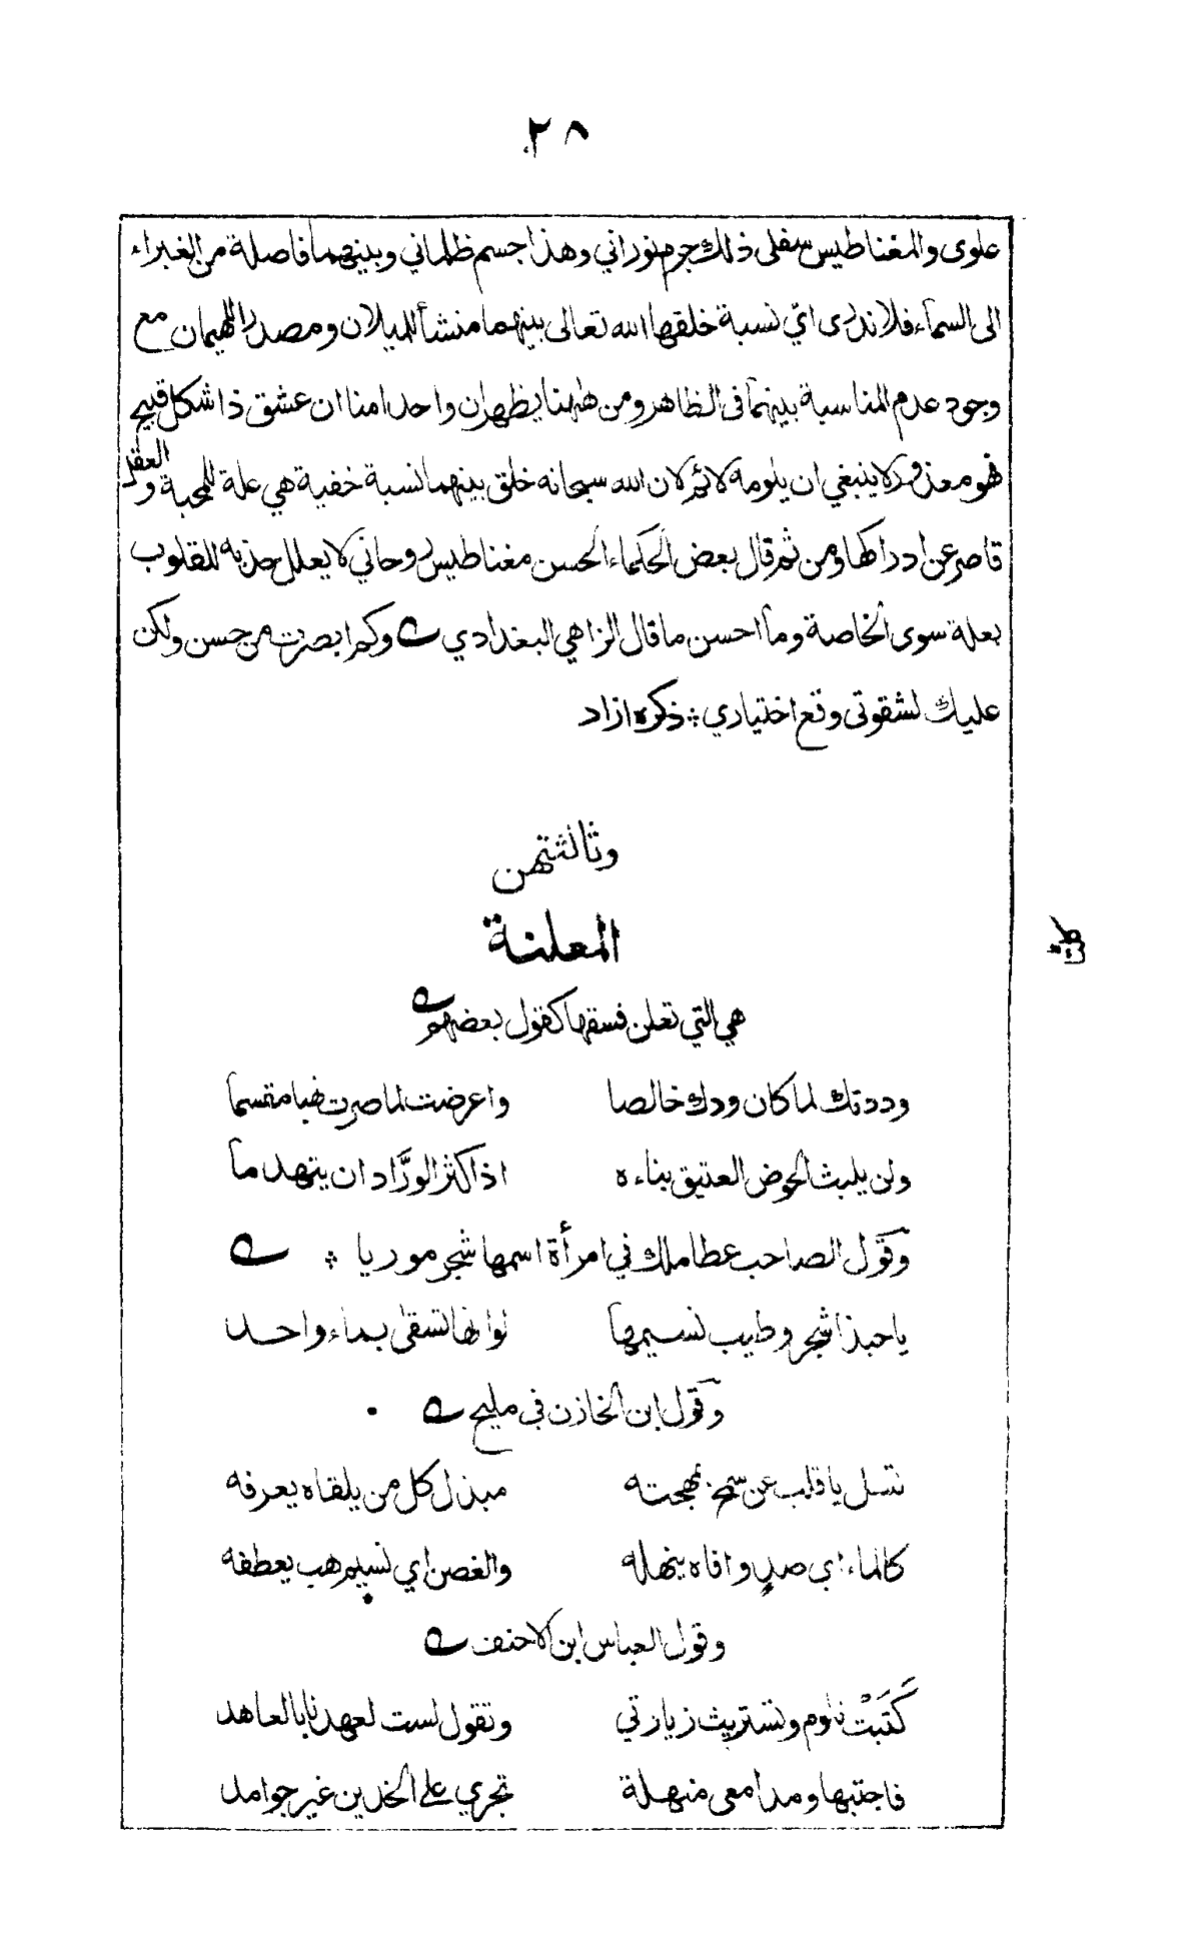 ٢٨
علوى والمغناطيس سفلى ذلك جرم نوراني وهذا جسم ظلماني وبينهما فاصلة من الغبراء
الى السمآء فلا ندرى اىّ نسبة خلقها الله تعالى بينهما منشأ للميلان ومصدرا للهيمان مع
وجود عدم المناسبة بينهما فى الظاهر ومن ههنا يظهر ان واحدا منا ان عشق ذا شكل قبيح
فهو معذور لا ينبغي ان يلومه لائم لان الله سبحانه خلق بينهما نسبة خفية هي علة للمحبة والعقل
قاصر عن ادراكها ومن ثم قال بعض الحكماء الحسن مغناطيس روحاني لا يعلل جذبه للقلوب
بعلة سوى الخاصة وما احسن ما قال الزاهي البغدادي ؎ وكم ابصرت من حسن ولكن
عليك لشقوتى وقع اختياري ؞ ذكره ازاد
وثالثتهن
المعلنة
هي التي تعلن فسقها كقول بعضهم ؎
وددتك لما كان ودك خالصا واعرضت لما صرت نهبا مقسما
ولن يلبث الحوض العتيق بناءه اذا كثر الورَّاد ان يتهدما
وكقول الصاحب عطا ملك في امرأة اسمها شجر موريا ؞ ؎
يا حبذا شجر وطيب نسيمها لو انها تسقى بماء واحد
وكقول ابن الخازن فى مليح ؎
تسل يا قلب عن سمح بمهجته مبذل كل من يلقاه يعرفه
كالماء اي صدٍ وافاه ينهله والغصن اي نسيم هب يعطفه
وقول العباس ابن الاحنف ؎
كَتَبَتْ تلوم وتستريث زيارتي وتقول لست لعهدنا بالعاهد
فاجبتها ومدامعى منهلة تجري على الخدين غير جوامد